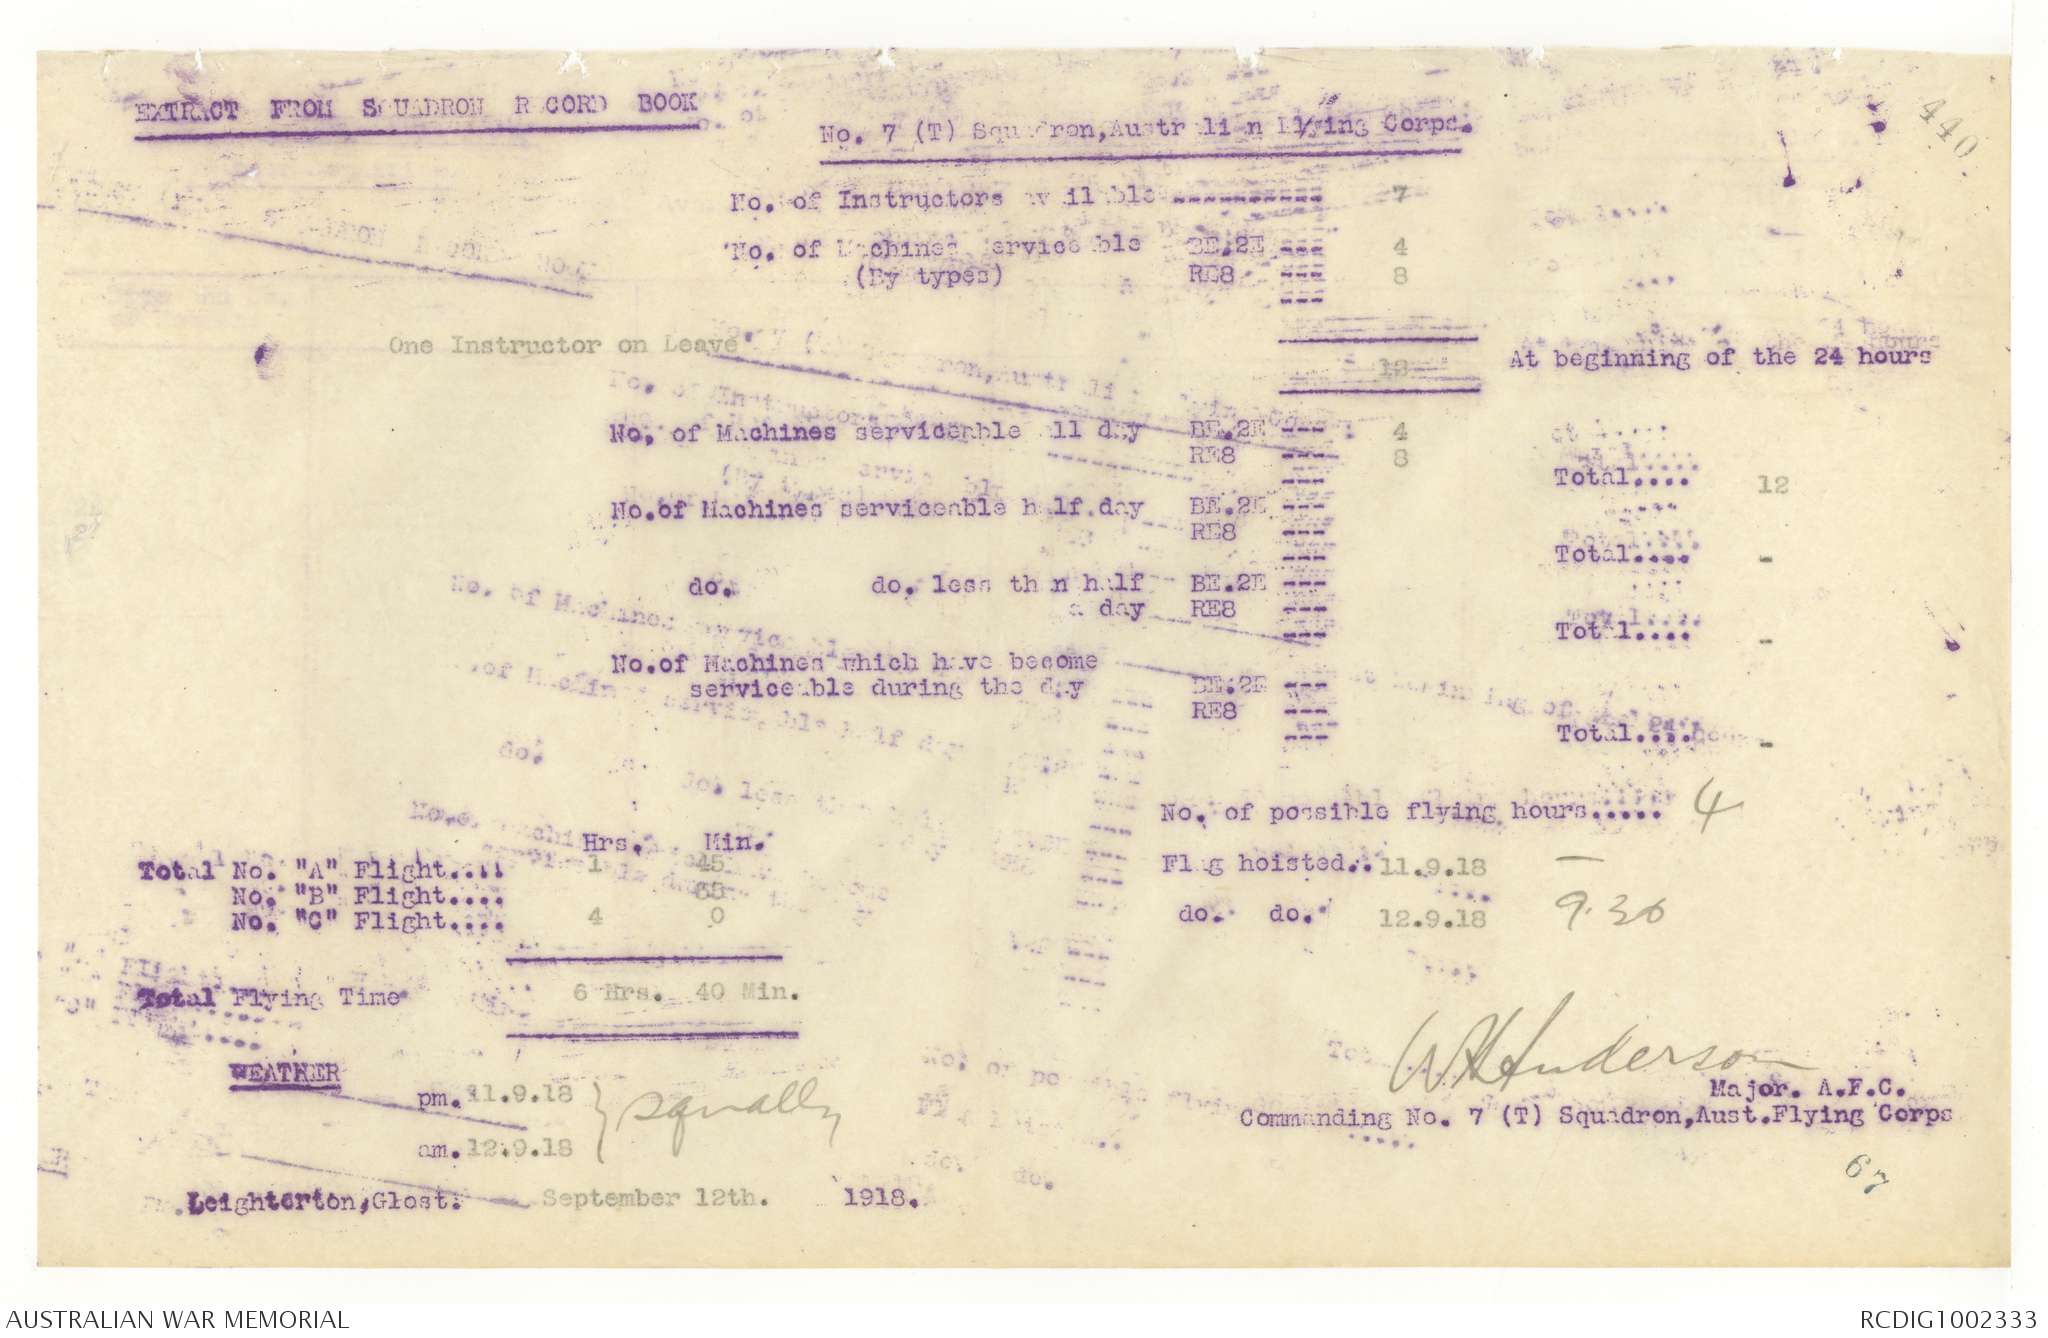 440
EXTRACT FROM SQUADRON RECORD BOOK
No. 7 (T) Squadron,Australian Flying Corps.
No. of Instructors available ---------- 7
No. of Machines serviceable BE.2E --- 4
(By types) RE8 --- 8
---
One Instructor on Leave
12 At beginning of the 24 hours
No. of Machines serviceable all day BE.2E --- 4
RE8 --- 8
--- Total.... 12
No.of Machines serviceable half day BE.2E ---
RE8 ---
--- Total.... -
do. do. less than half BE.2E ---
a day RE8 ---
--- Total.... -
No.of Machines which have become
serviceable during the day BE.2E ---
RE8 ---
--- Total.... -
No. of possible flying hours..... 4
Hrs. Min.
Total No. "A" Flight.... 1 45
No. "B" Flight....
No. "C" Flight.... 4 0
Flag hoisted.. 11.9.18 —
do. do. 12.9.18 9.30
Total Flying Time 6 Hrs. 40 Min.
WHAnderson
Major. A.F.C.
Commanding No. 7 (T) Squadron,Aust.Flying Corps
WEATHER
pm. 11.9.18 } squally
am. 12.9.18
67
Leighterton,Glost. September 12th. 1918.
AUSTRALIAN WAR MEMORIAL
RCDIG1002333